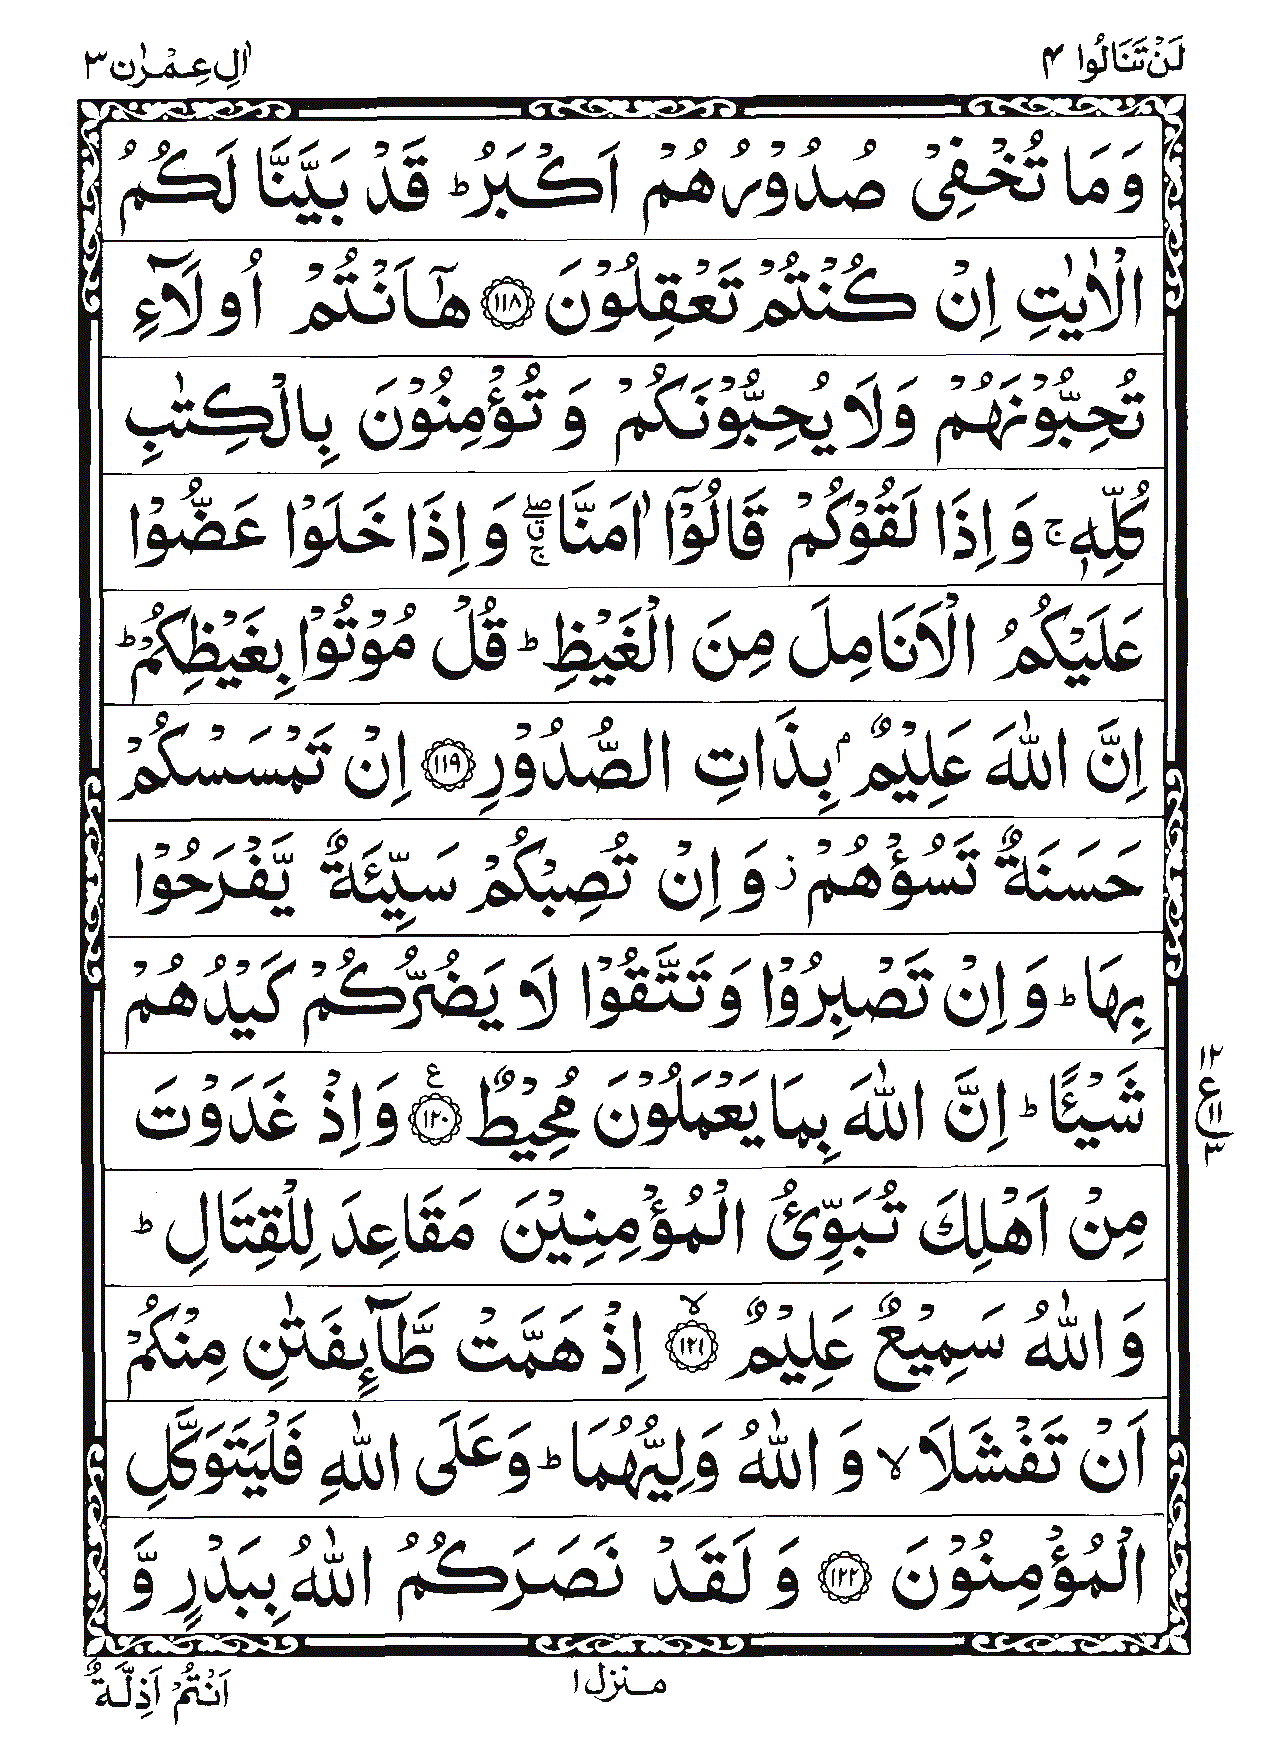 لَنْ تَنَالُوا ۴
اٰلِ عِمْرٰن ۳
وَمَا تُخْفِیْ صُدُوْرُهُمْ اَكْبَرُ ؕ قَدْ بَیَّنَّا لَكُمُ
الْاٰیٰتِ اِنْ كُنْتُمْ تَعْقِلُوْنَ ﴿۱۱۸﴾ هٰۤاَنْتُمْ اُولَآءِ
تُحِبُّوْنَهُمْ وَلَا یُحِبُّوْنَكُمْ وَ تُؤْمِنُوْنَ بِالْكِتٰبِ
كُلِّهٖ ۚ وَاِذَا لَقُوْكُمْ قَالُوْۤا اٰمَنَّا ۖۗۚ وَاِذَا خَلَوْا عَضُّوْا
عَلَیْكُمُ الْاَنَامِلَ مِنَ الْغَیْظِ ؕ قُلْ مُوْتُوْا بِغَیْظِكُمْ ؕ
اِنَّ اللّٰهَ عَلِیْمٌۢ بِذَاتِ الصُّدُوْرِ ﴿۱۱۹﴾ اِنْ تَمْسَسْكُمْ
حَسَنَةٌ تَسُؤْهُمْ ز وَ اِنْ تُصِبْكُمْ سَیِّئَةٌ یَّفْرَحُوْا
بِهَا ؕ وَ اِنْ تَصْبِرُوْا وَ تَتَّقُوْا لَا یَضُرُّكُمْ كَیْدُهُمْ
شَیْـًٔا ؕ اِنَّ اللّٰهَ بِمَا یَعْمَلُوْنَ مُحِیْطٌ ﴿۱۲۰﴾ ع وَاِذْ غَدَوْتَ
۱۲
ع
۱۱
۳
مِنْ اَهْلِكَ تُبَوِّئُ الْمُؤْمِنِیْنَ مَقَاعِدَ لِلْقِتَالِ ؕ
وَ اللّٰهُ سَمِیْعٌ عَلِیْمٌ ﴿۱۲۱﴾ ۙ اِذْ هَمَّتْ طَّآىِٕفَتٰنِ مِنْكُمْ
اَنْ تَفْشَلَا ۙ وَ اللّٰهُ وَلِیُّهُمَا ؕ وَعَلَی اللّٰهِ فَلْیَتَوَكَّلِ
الْمُؤْمِنُوْنَ ﴿۱۲۲﴾ وَ لَقَدْ نَصَرَكُمُ اللّٰهُ بِبَدْرٍ وَّ
منزل ۱
اَنْتُمْ اَذِلَّةٌ